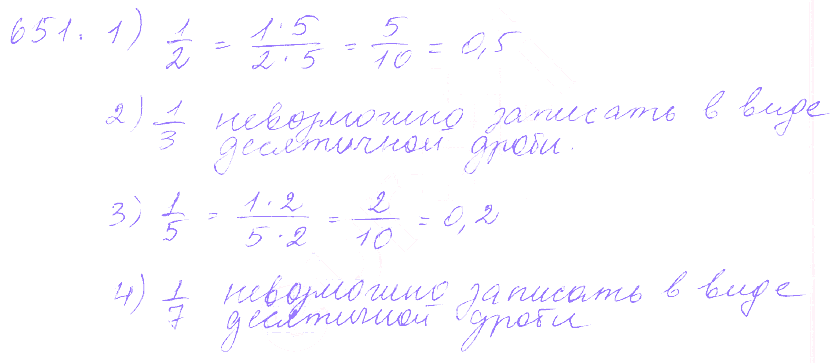 651. 1) 1/2 = 1·5/2·5 = 5/10 = 0,5
2) 1/3 невозможно записать в виде
десятичной дроби.
3) 1/5 = 1·2/5·2 = 2/10 = 0,2
4) 1/7 невозможно записать в виде
десятичной дроби